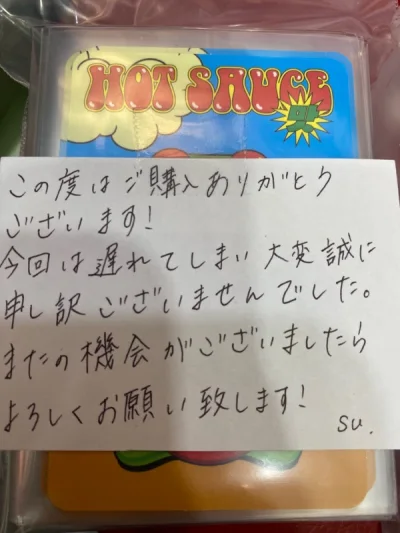 HOT SAUCE
맛
この度はご購入ありがとう
ございます!
今回は遅れてしまい大変誠に
申し訳ございませんでした。
またの機会がございましたら
よろしくお願い致します!
su.